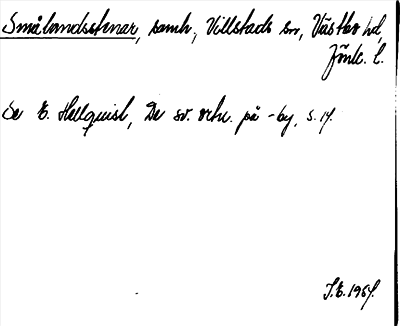 Smålandsstenar, samh., Villstads sn, Västbo hd,
Jönk. l.
Se E. Hellquist, De sv. ortn. på -by, s. 17.
J.E. 1967.